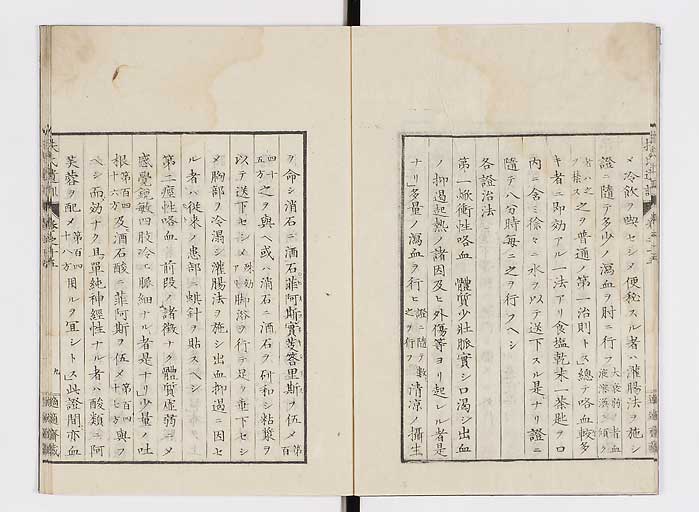 メ冷飲ヲ與セシメ便秘スル者ハ灌腸法ヲ施シ
證ニ隨テ多少ノ瀉血ヲ肘ニ行フ
之ヲ普通ノ第一治則トス」總テ咯血較多
キ者ニ即効アル一法アリ食塩乾末一茶匙ヲ口
内ニ含ミ徐々ニ水ヲ以テ送下スル是ナリ證ニ
隨テ八分時每ニ之ヲ行フヘシ
各證治法
第一焮衝性咯血 體質少壯脈實シ口渴シ出血
ノ抑遏起熱ノ諸因及ヒ外傷等ヨリ起レル者是
ナリ」多量ノ瀉血ヲ行ヒ 證ニ隨テ數之ヲ行フ 清凉ノ攝生
ヲ命シ消石ニ酒石菲阿斯實芰荅里斯ヲ伍メ 第百
四十五方 之ヲ與ヘ或ハ消石ニ酒石ヲ研和シ粘漿ヲ
以テ送下セシメ 脚浴ヲ行テ足ヲ垂下セシ
メ胸部ヲ冷溻シ灌腸法ヲ施シ出血抑遏ニ因セ
ル者ハ從來ノ患部ニ蜞針ヲ貼スヘシ
第二痙性咯血 前段ノ諸徵ナク體質虚弱ニメ
感覺鋭敏四肢冷エ脈細ナル者是ナリ」少量ノ吐
根 第百四十六方 及ヒ酒石酸ニ菲阿斯ヲ伍メ 第百四十七方 與フ
ヘシ而効ナク且單純神經性ナル者ハ酸類ニ阿
芙蓉ヲ配メ 第百四十八方 用ルヲ宜シトス」此證間亦血
九
適適齋藏